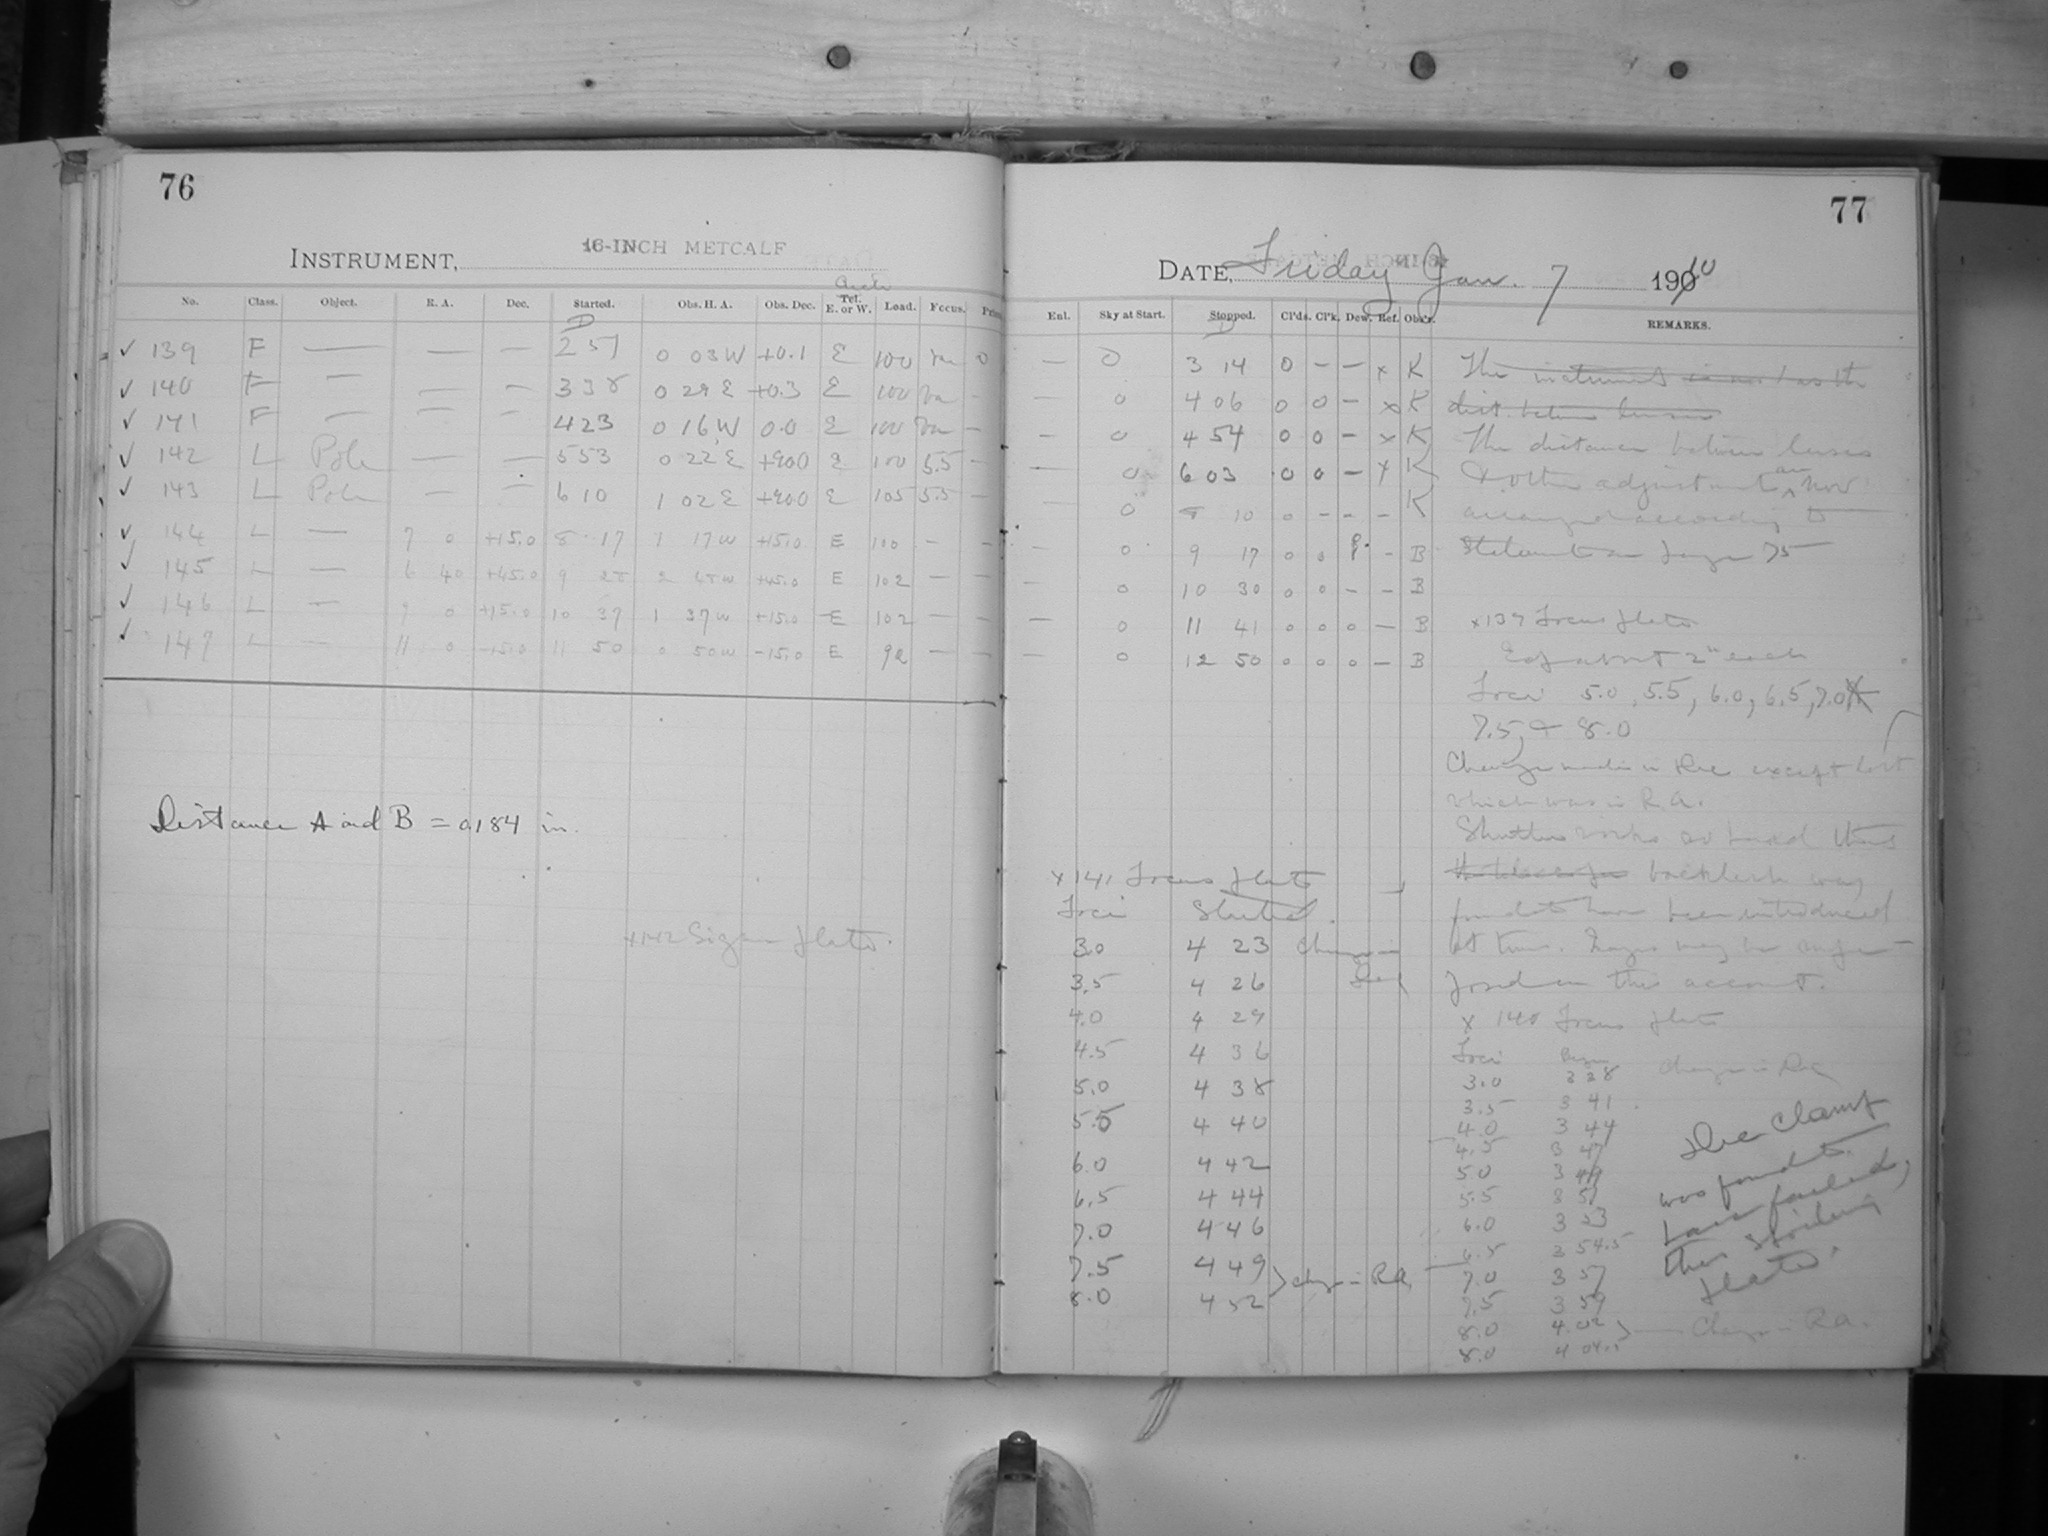 76
INSTRUMENT, 16-INCH METCALF
No. Class. Object. R. A. Dec. Started. Obs. H. A. Obs. Dec. Tel. E. or W. Load. Focus.
✓ 139 F — — — 2 51 0 03 W +0.1 E 100 0
✓ 140 F — — — 3 38 0 29 E +0.3 E 100 —
✓ 141 F — — — 4 23 0 16 W 0.0 E 100 —
✓ 142 L Pole — — 5 53 0 22 E +90.0 E 100 5.5 —
✓ 143 L Pole — — 6 10 1 02 E +90.0 E 105 5.5 —
✓ 144 L — 7 0 +15.0 8 17 1 17 W +15.0 E 100 — —
✓ 145 L — 6 40 +45.0 9 28 2 48 W +45.0 E 102 — —
✓ 146 L — 9 0 +15.0 10 37 1 37 W +15.0 E 102 — —
✓ 147 L — 11 0 -15.0 11 50 0 50 W -15.0 E 92 — —
Distance A and B = 0.184 in.
x142 plate.
77
DATE, Friday Jan. 7 1910
Enl. Sky at Start. Stopped. Cl'ds. Cl'k. Dew. Ref. Obs'r. REMARKS.
— 0 3 14 0 — — x K The instrument
— 0 4 06 0 0 — x K dist. between lenses
— 0 4 54 0 0 — x K The distance between lenses
— 0 6 03 0 0 — x K & other adjustments are now
— 0 8 10 0 — — — K arranged according to
— 0 9 17 0 0 — B Statement on page 75
— 0 10 30 0 0 — — B
— 0 11 41 0 0 0 — B x139 Focus plate
— 0 12 50 0 0 0 — B Exp about 2m each
Foci 5.0, 5.5, 6.0, 6.5, 7.0
7.5, & 8.0
Change made in Dec except last
which was in R.A.
Shutter works so hard that
backlash may
have been introduced
at times.
on this account.
x 141 Focus plate
Foci Started.
3.0 4 23 Change in Dec
3.5 4 26
4.0 4 29
4.5 4 36
5.0 4 38
5.5 4 40
6.0 4 42
6.5 4 44
7.0 4 46
7.5 4 49
8.0 4 52 } chge in R.A.
x 140 Focus plate
Foci Began Change in Dec
3.0 3 38
3.5 3 41
4.0 3 44
4.5 3 47
5.0 3 49
5.5 3 51
6.0 3 53
6.5 3 54.5
7.0 3 57
7.5 3 59
8.0 4 02 } Change in R.A.
8.0 4 04.5
Dec clamp
was found to
have failed,
thus spoiling
plate.